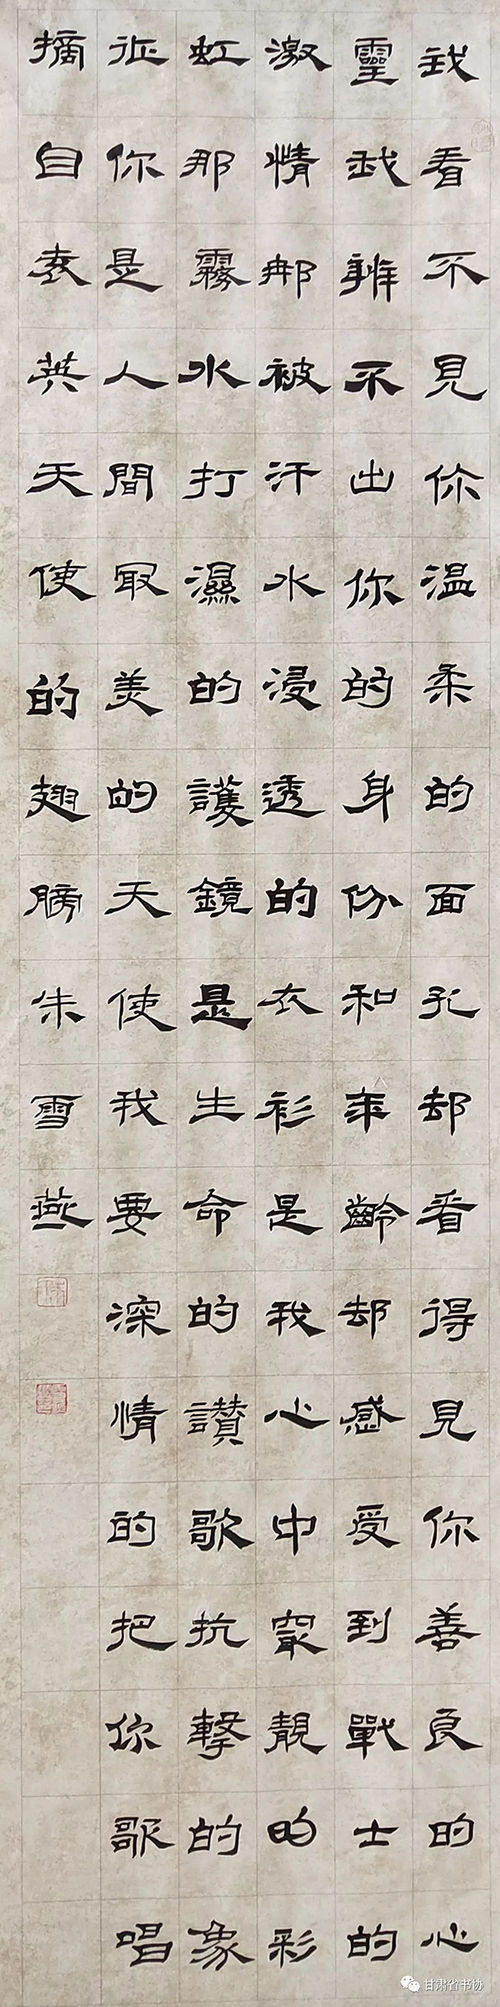 我看不見你温柔的面孔却看得見你善良的心
靈我辨不出你的身份和年齡却感受到戰士的
激情那被汗水浸透的衣衫是我心中最靚的彩
虹那霧水打濕的護鏡是生命的讃歌抗擊的象
征你是人間最美的天使我要深情的把你歌唱
摘自袁英天使的翅膀朱雪燕
甘肃省书协